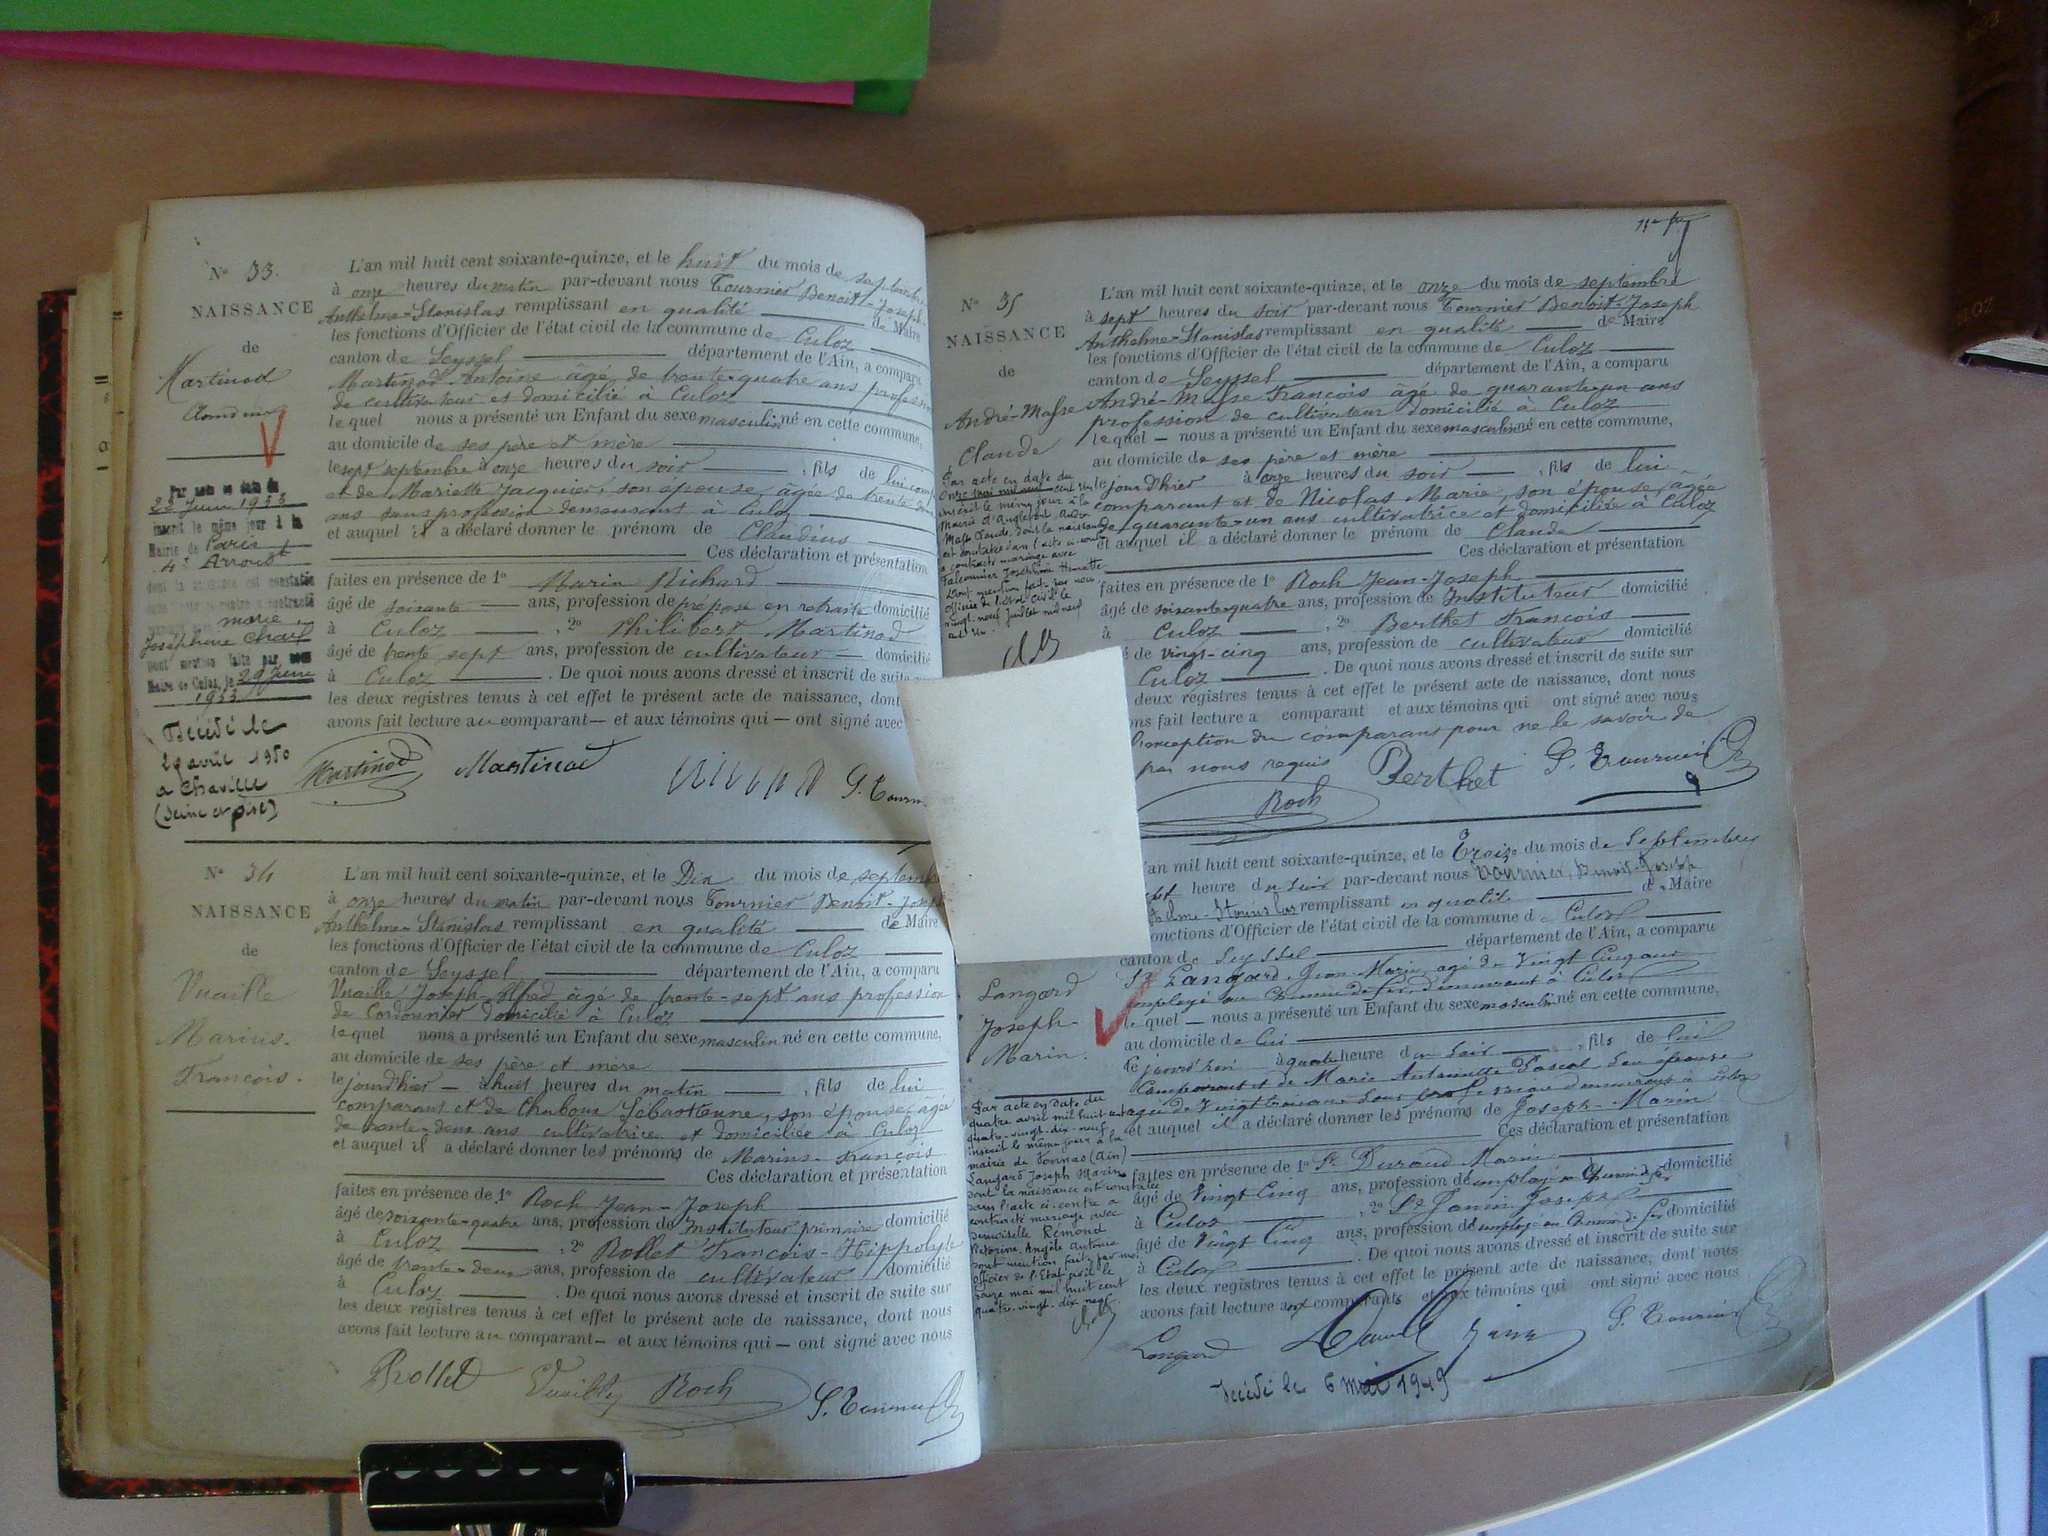 N° 33.
NAISSANCE
de
Martinod
Claudius
Par acte en date du
23 Juin 1933
inscrit le même jour à la
Mairie de Paris
4e Arrondt
marié
Joséphine
dont mention faite par nous
Maire de Culoz, le 29 Juin
1933
Décédé le
29 avril 1950
a Chaville
(Seine et Oise)
L'an mil huit cent soixante-quinze, et le huit du mois de septembre
à onze heures du matin par-devant nous Tournier Benoit-Joseph-
Anthelme-Stanislas remplissant en qualité de Maire
les fonctions d'Officier de l'état civil de la commune de Culoz
canton de Seyssel département de l'Ain, a comparu
Martinod Antoine âgé de trente-quatre ans profession
de cultivateur et domicilié à Culoz
lequel nous a présenté un Enfant du sexe masculin né en cette commune,
au domicile de ses père et mère
le sept septembre à onze heures du soir , fils de lui comp
et de Mariette Jacquier, son épouse, âgée de trente deux
ans sans profession demeurant à Culoz
et auquel il a déclaré donner le prénom de Claudius
Ces déclaration et présentation
faites en présence de 1° Marin Richard
âgé de soixante ans, profession de préposé en retraite domicilié
à Culoz , 2° Philibert Martinod
âgé de trente sept ans, profession de cultivateur domicilié
à Culoz . De quoi nous avons dressé et inscrit de suite sur
les deux registres tenus à cet effet le présent acte de naissance, dont
avons fait lecture au comparant — et aux témoins qui — ont signé avec
Martinod Martinod G. Tourn
N° 34
NAISSANCE
de
Vuaille
Marius-
François.
L'an mil huit cent soixante-quinze, et le Dix du mois de septemb
à onze heures du matin par-devant nous Tournier Benoit-Joseph
Anthelme Stanislas remplissant en qualité de Maire
les fonctions d'Officier de l'état civil de la commune de Culoz
canton de Seyssel département de l'Ain, a comparu
Vuaille Joseph-Alfred âgé de trente-sept ans profession
de Cordonnier domicilié à Culoz
lequel nous a présenté un Enfant du sexe masculin né en cette commune,
au domicile de ses père et mère
le jourd'hier — à huit heures du matin , fils de lui
comparant et de Chaboux Sébastienne, son épouse, âgée
de trente-deux ans cultivatrice et domiciliée à Culoz
et auquel il a déclaré donner les prénoms de Marius-François
Ces déclaration et présentation
faites en présence de 1° Roch Jean-Joseph
âgé de soixante-quatre ans, profession de Instituteur primaire domicilié
à Culoz , 2° Rollet François-Hippolyte
âgé de trente-deux ans, profession de cultivateur domicilié
à Culoz . De quoi nous avons dressé et inscrit de suite sur
les deux registres tenus à cet effet le présent acte de naissance, dont nous
avons fait lecture au comparant — et aux témoins qui — ont signé avec nous
Rollet Roch G. Tournier
N° 35
NAISSANCE
de
André-Masse
Claude
Par acte en date du
onze mai mil neuf cent un
inscrit le même jour à la
Mairie d'Anglefort André
Masse Claude, dont la naissance
est constatée dans l'acte ci-contre
a contracté mariage avec
Falconnier Joséphine Henriette
Dont mention faite par nous
Officier de l'état Civil le
vingt-neuf Juillet mil neuf
cent un.
L'an mil huit cent soixante-quinze, et le onze du mois de septembre
à sept heures du soir par-devant nous Tournier Benoit-Joseph
Anthelme-Stanislas remplissant en qualité de Maire
les fonctions d'Officier de l'état civil de la commune de Culoz
canton de Seyssel département de l'Ain, a comparu
André-Masse François âgé de quarante-un ans
profession de cultivateur domicilié à Culoz
lequel — nous a présenté un Enfant du sexe masculin né en cette commune,
au domicile de ses père et mère
le jourd'hier à onze heures du soir , fils de lui
comparant et de Nicolas Marie, son épouse, âgée
de quarante-un ans cultivatrice et domiciliée à Culoz
et auquel il a déclaré donner le prénom de Claude
Ces déclaration et présentation
faites en présence de 1° Roch Jean-Joseph
âgé de soixante-quatre ans, profession de Instituteur domicilié
à Culoz , 2° Berthet François
é de vingt-cinq ans, profession de cultivateur domicilié
Culoz . De quoi nous avons dressé et inscrit de suite sur
deux registres tenus à cet effet le présent acte de naissance, dont nous
ns fait lecture a comparant et aux témoins qui ont signé avec nous
l'exception du comparant pour ne le savoir de
par nous requis Berthet G. Tournier
Roch
Langard
Joseph-
Marin.
Par acte en date du
quatre avril mil huit cent
quatre-vingt-dix-neuf
inscrit le même jour à la
mairie de Vonnas (Ain)
Langard Joseph Marin
dont la naissance est constatée
dans l'acte ci-contre a
contracté mariage avec
demoiselle Rémond
Victorine, Angèle Antonie
dont mention faite par moi
officier de l'Etat civil le
mai mil huit cent
quatre-vingt-dix neuf.
an mil huit cent soixante-quinze, et le Treize du mois de Septembre
sept heure du soir par-devant nous Tournier, Benoit-Joseph
thelme-Stanislas remplissant en qualité de Maire
fonctions d'Officier de l'état civil de la commune de Culoz
canton de Seyssel département de l'Ain, a comparu
Sr Langard, Jean-Marie, agé de Vingt Cinq ans
employé au Chemin de fer demeurant à Culoz
lequel — nous a présenté un Enfant du sexe masculin né en cette commune,
au domicile de lui
le jourd'hui à quatre heure du soir , fils de lui
Comparant et de Marie Antoinette Pascal Son épouse
agée de Vingt trois ans Sans profession demeurant à Culoz
et auquel il a déclaré donner les prénoms de Joseph-Marin
Ces déclaration et présentation
faites en présence de 1° Sr Durand Marin
âgé de Vingt Cinq ans, profession de employé au Chemin de fer domicilié
à Culoz , 2° Sr Janin Joseph
âgé de Vingt Cinq ans, profession de employé au Chemin de fer domicilié
à Culoz . De quoi nous avons dressé et inscrit de suite sur
les deux registres tenus à cet effet le présent acte de naissance, dont nous
avons fait lecture aux comparants et aux témoins qui ont signé avec nous
Langard G. Tournier
Décédé le 6 mai 1949